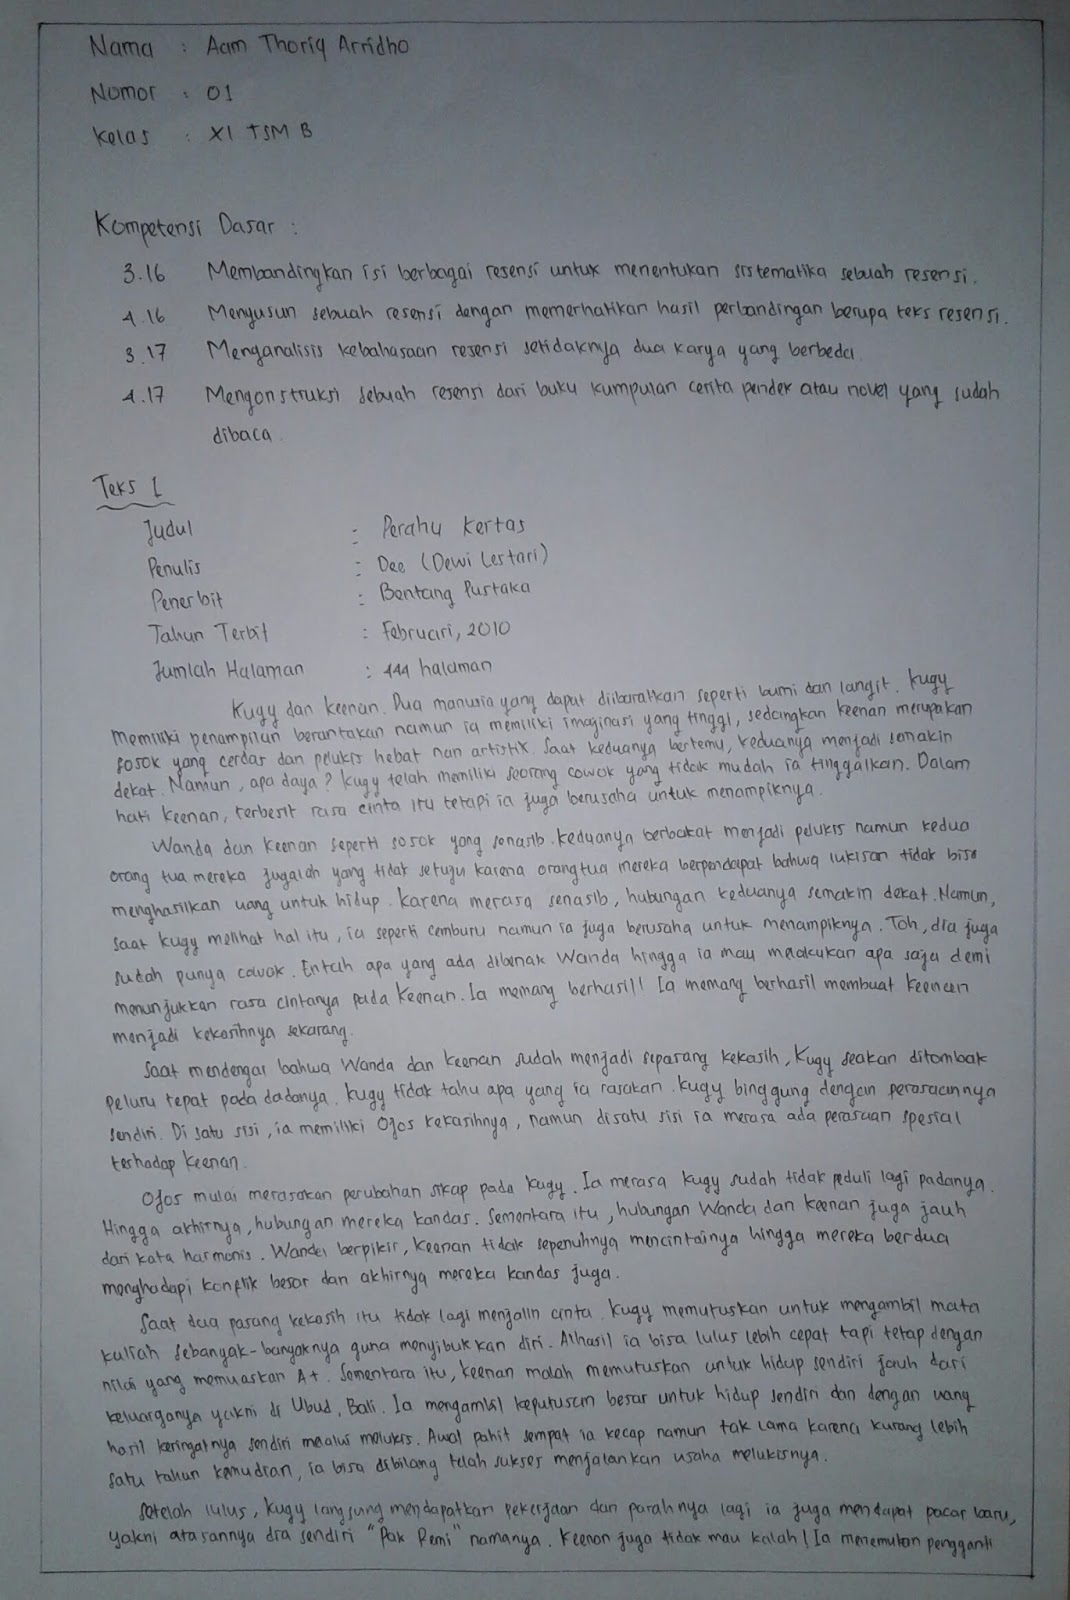 Nama : Aam Thoriq Arridho
Nomor : 01
Kelas : XI TSM B
Kompetensi Dasar :
3.16 Membandingkan isi berbagai resensi untuk menentukan sistematika sebuah resensi.
4.16 Menyusun sebuah resensi dengan memerhatikan hasil perbandingan berupa teks resensi.
3.17 Menganalisis kebahasaan resensi setidaknya dua karya yang berbeda.
4.17 Mengonstruksi sebuah resensi dari buku kumpulan cerita pendek atau novel yang sudah
dibaca.
Teks 1
Judul : Perahu Kertas
Penulis : Dee (Dewi Lestari)
Penerbit : Bentang Pustaka
Tahun Terbit : Februari, 2010
Jumlah Halaman : 444 halaman
Kugy dan Keenan. Dua manusia yang dapat diibaratkan seperti bumi dan langit. Kugy
memiliki penampilan berantakan namun ia memiliki imaginasi yang tinggi, sedangkan keenan merupakan
sosok yang cerdas dan pelukis hebat nan artistik. Saat keduanya bertemu, keduanya menjadi semakin
dekat. Namun, apa daya? Kugy telah memiliki seorang cowok yang tidak mudah ia tinggalkan. Dalam
hati Keenan, terbesit rasa cinta itu tetapi ia juga berusaha untuk menampiknya.
Wanda dan Keenan seperti sosok yang senasib. Keduanya berbakat menjadi pelukis namun kedua
orang tua mereka jugalah yang tidak setuju karena orangtua mereka berpendapat bahwa lukisan tidak bisa
menghasilkan uang untuk hidup. Karena merasa senasib, hubungan keduanya semakin dekat. Namun,
saat Kugy melihat hal itu, ia seperti cemburu namun ia juga berusaha untuk menampiknya. Toh, dia juga
sudah punya cowok. Entah apa yang ada dibenak Wanda hingga ia mau melakukan apa saja demi
menunjukkan rasa cintanya pada Keenan. Ia memang berhasil! Ia memang berhasil membuat Keenan
menjadi kekasihnya sekarang.
Saat mendengar bahwa Wanda dan Keenan sudah menjadi sepasang kekasih, Kugy seakan ditembak
peluru tepat pada dadanya. Kugy tidak tahu apa yang ia rasakan. Kugy binggung dengan perasaannya
sendiri. Di satu sisi, ia memiliki Ojos kekasihnya, namun disatu sisi ia merasa ada perasaan spesial
terhadap Keenan.
Ojos mulai merasakan perubahan sikap pada Kugy. Ia merasa Kugy sudah tidak peduli lagi padanya.
Hingga akhirnya, hubungan mereka kandas. Sementara itu, hubungan Wanda dan Keenan juga jauh
dari kata harmonis. Wanda berpikir, Keenan tidak sepenuhnya mencintainya hingga mereka berdua
menghadapi konflik besar dan akhirnya mereka kandas juga.
Saat dua pasang kekasih itu tidak lagi menjalin cinta. Kugy memutuskan untuk mengambil mata
kuliah sebanyak-banyaknya guna menyibukkan diri. Alhasil ia bisa lulus lebih cepat tapi tetap dengan
nilai yang memuaskan A+. Sementara itu, Keenan malah memutuskan untuk hidup sendiri jauh dari
keluarganya yakni di Ubud, Bali. Ia mengambil keputusan besar untuk hidup sendiri dan dengan uang
hasil keringatnya sendiri melalui melukis. Awal pahit sempat ia kecap namun tak lama karena kurang lebih
satu tahun kemudian, ia bisa dibilang telah sukses menjalankan usaha melukisnya.
Setelah lulus, Kugy langsung mendapatkan pekerjaan dan parahnya lagi ia juga mendapat pacar baru,
yakni atasannya dia sendiri "Pak Remi" namanya. Keenan juga tidak mau kalah! Ia menemukan pengganti